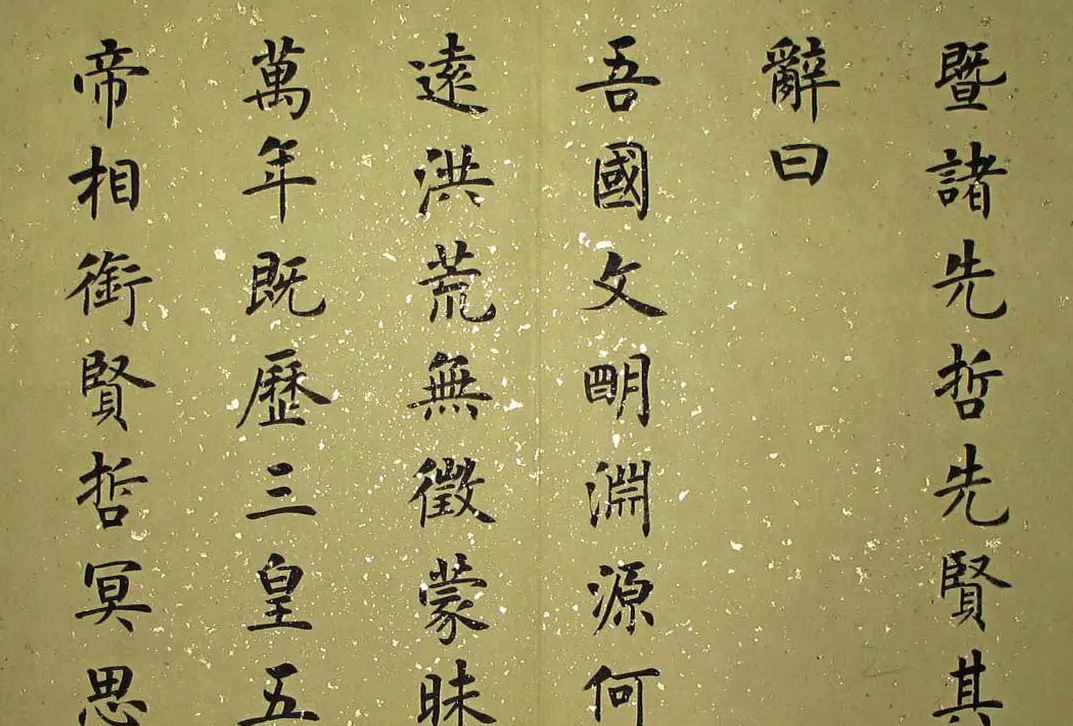 暨諸先哲先賢其
辭曰
吾國文明淵源何
遠洪荒無徵蒙昧
萬年既歷三皇五
帝相銜賢哲冥思